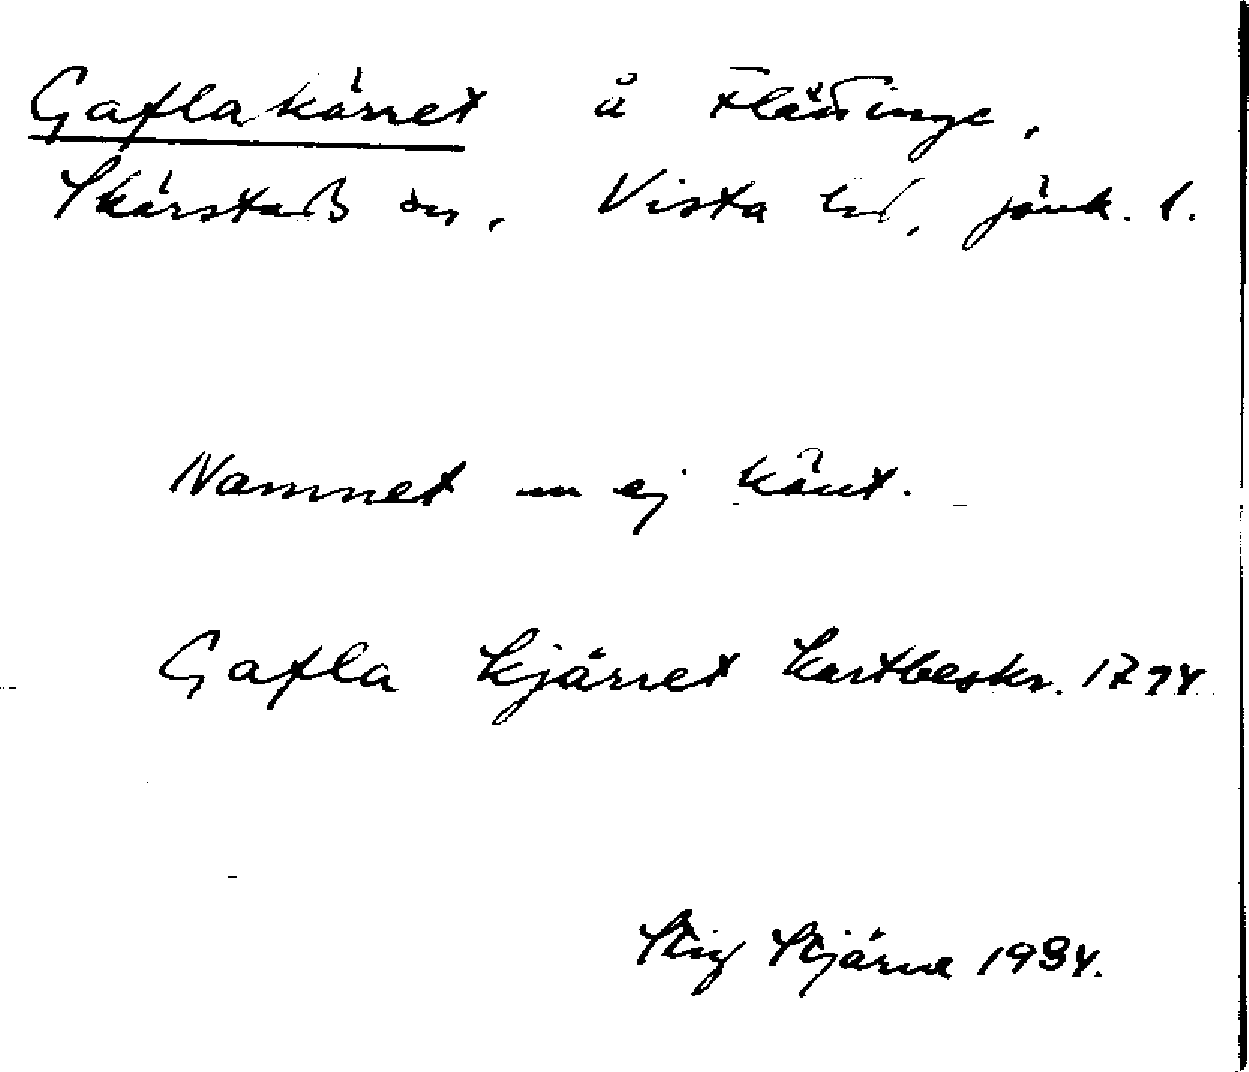 Gaflakärret å Flättinge,
Skärstads sn, Vista hd, Jönk. l.
Namnet nu ej känt.
Gafla kjärret kartbeskr. 1794.
Stig Stjärna 1934.